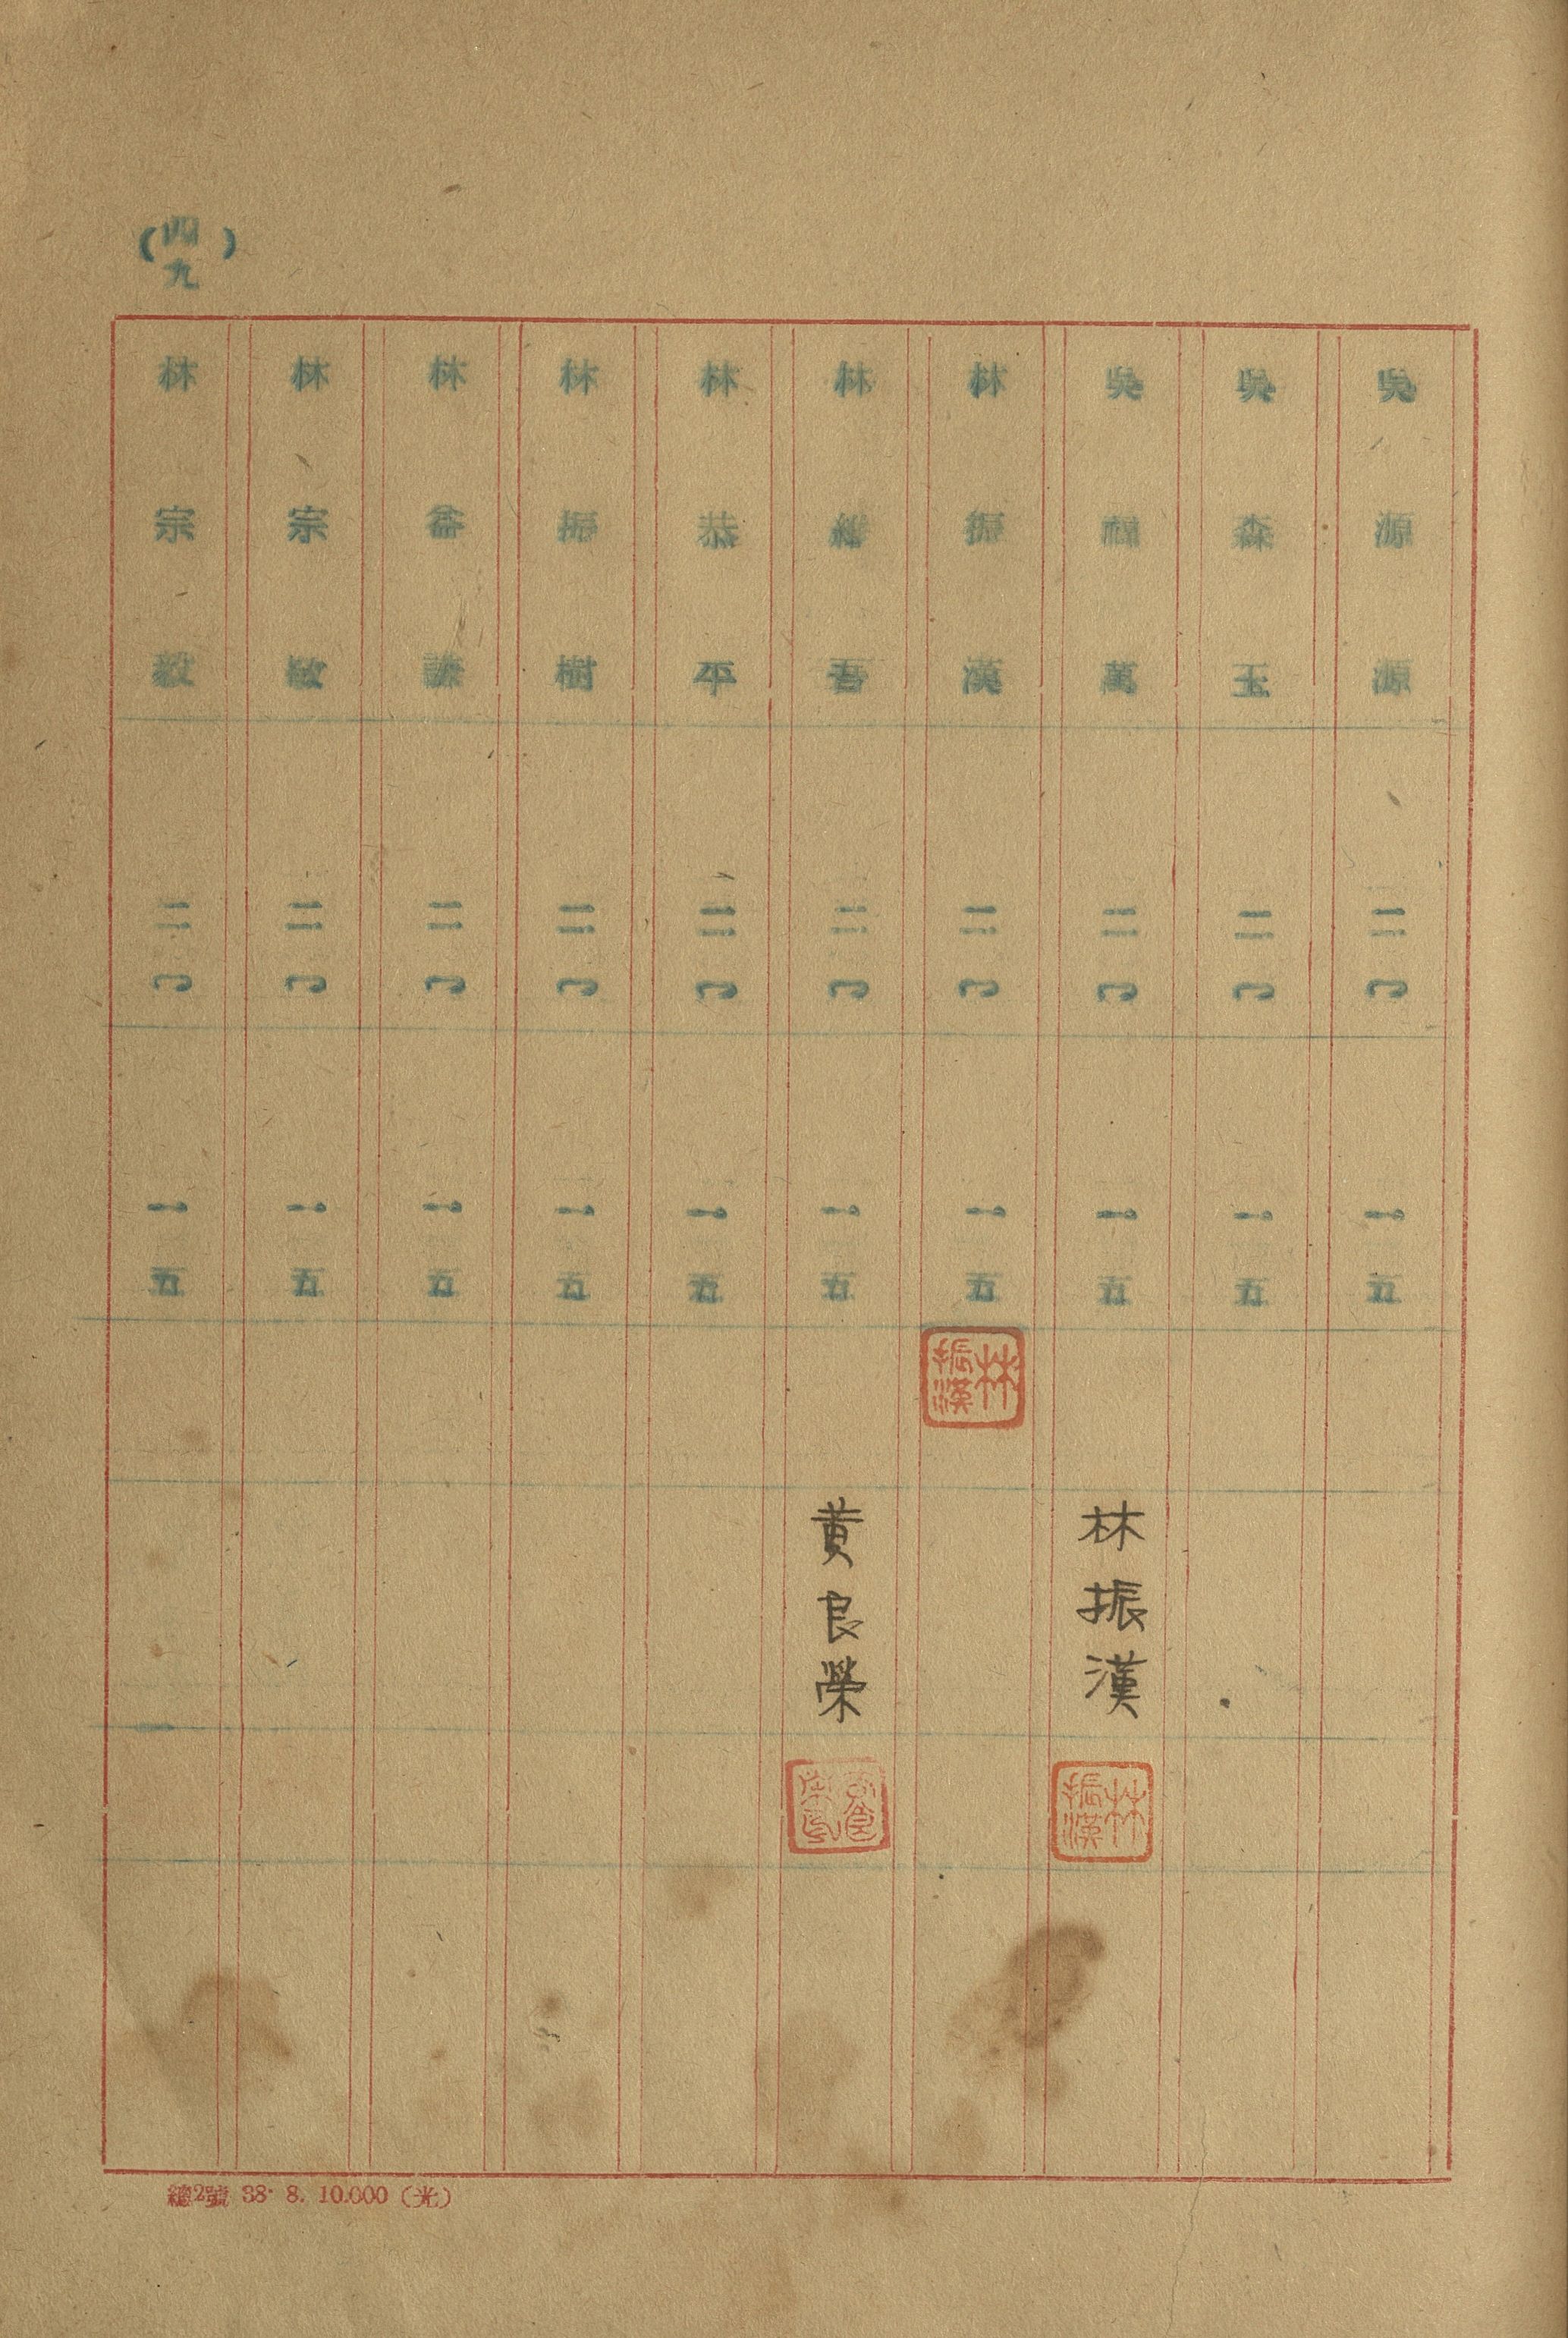 吳源源 二〇 一五
吳森玉 二〇 一五
吳福萬 二〇 一五 林振漢 林振漢
林振漢 二〇 一五 林振漢
林 吾 二〇 一五 黄良榮
林恭平 二〇 一五
林振樹 二〇 一五
林益謙 二〇 一五
林宗敏 二〇 一五
林宗毅 二〇 一五
(四九)
總2號 38. 8. 10.000 (光)